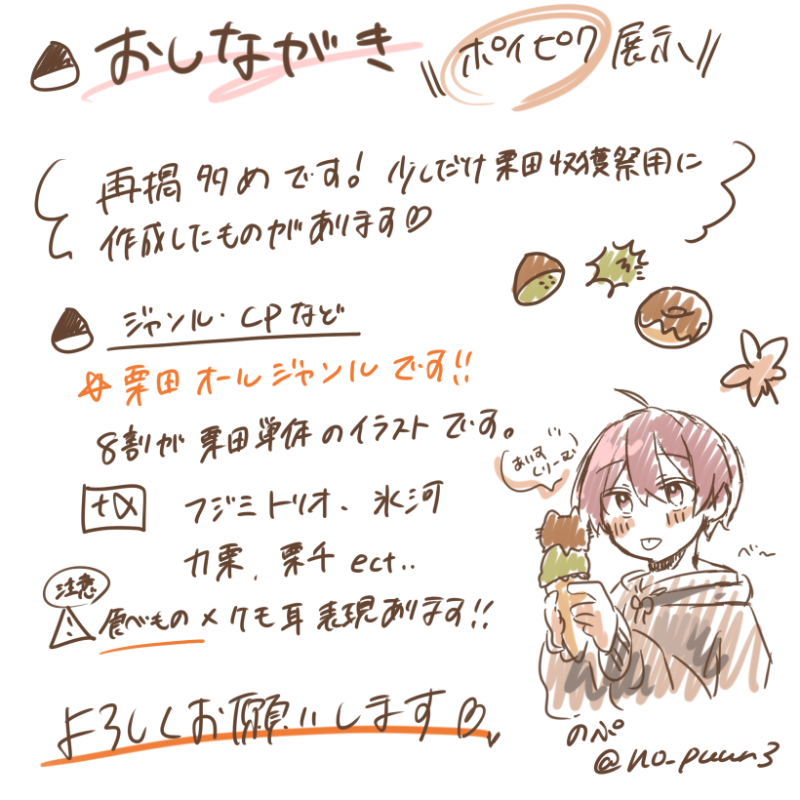 おしながき
ポイピク 展示
再掲多めです! 少しだけ栗田収穫祭用に
作成したものがあります♡
ジャンル・CPなど
☆栗田オールジャンルです!!
8割が栗田単体のイラストです。
+α フジミトリオ、氷河
カ栗、栗千 ect..
注意
⚠ 食べもの メ ケモ耳 表現あります!!
よろしくお願いします♡
あいすくりーむ
べ〜
のぷ
@no_puun3